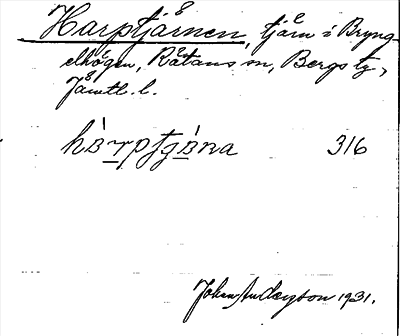 Harptjärnen, tjärn i Bryng-
elhögen, Rätans sn, Bergs tg,
Jämtl. l.
316
Johan Anderson 1931.